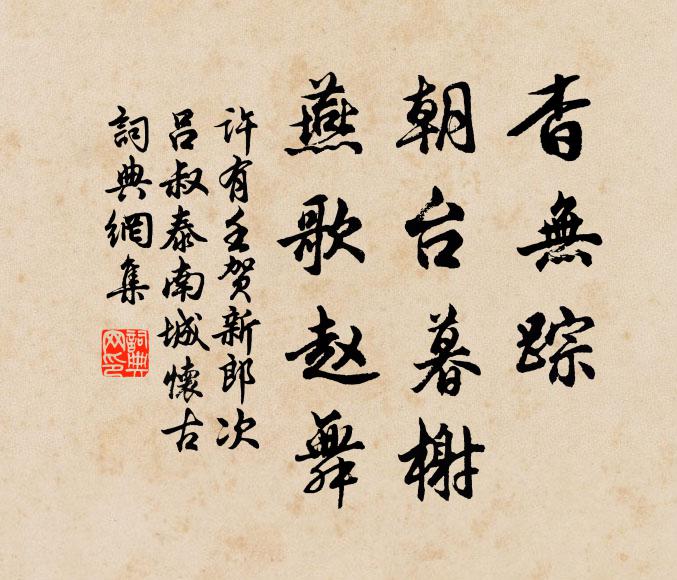 杳無踪
朝台暮榭
燕歌赵舞
許有壬賀新郎次
吕叔泰南城懷古
詞典網集
詞典网印